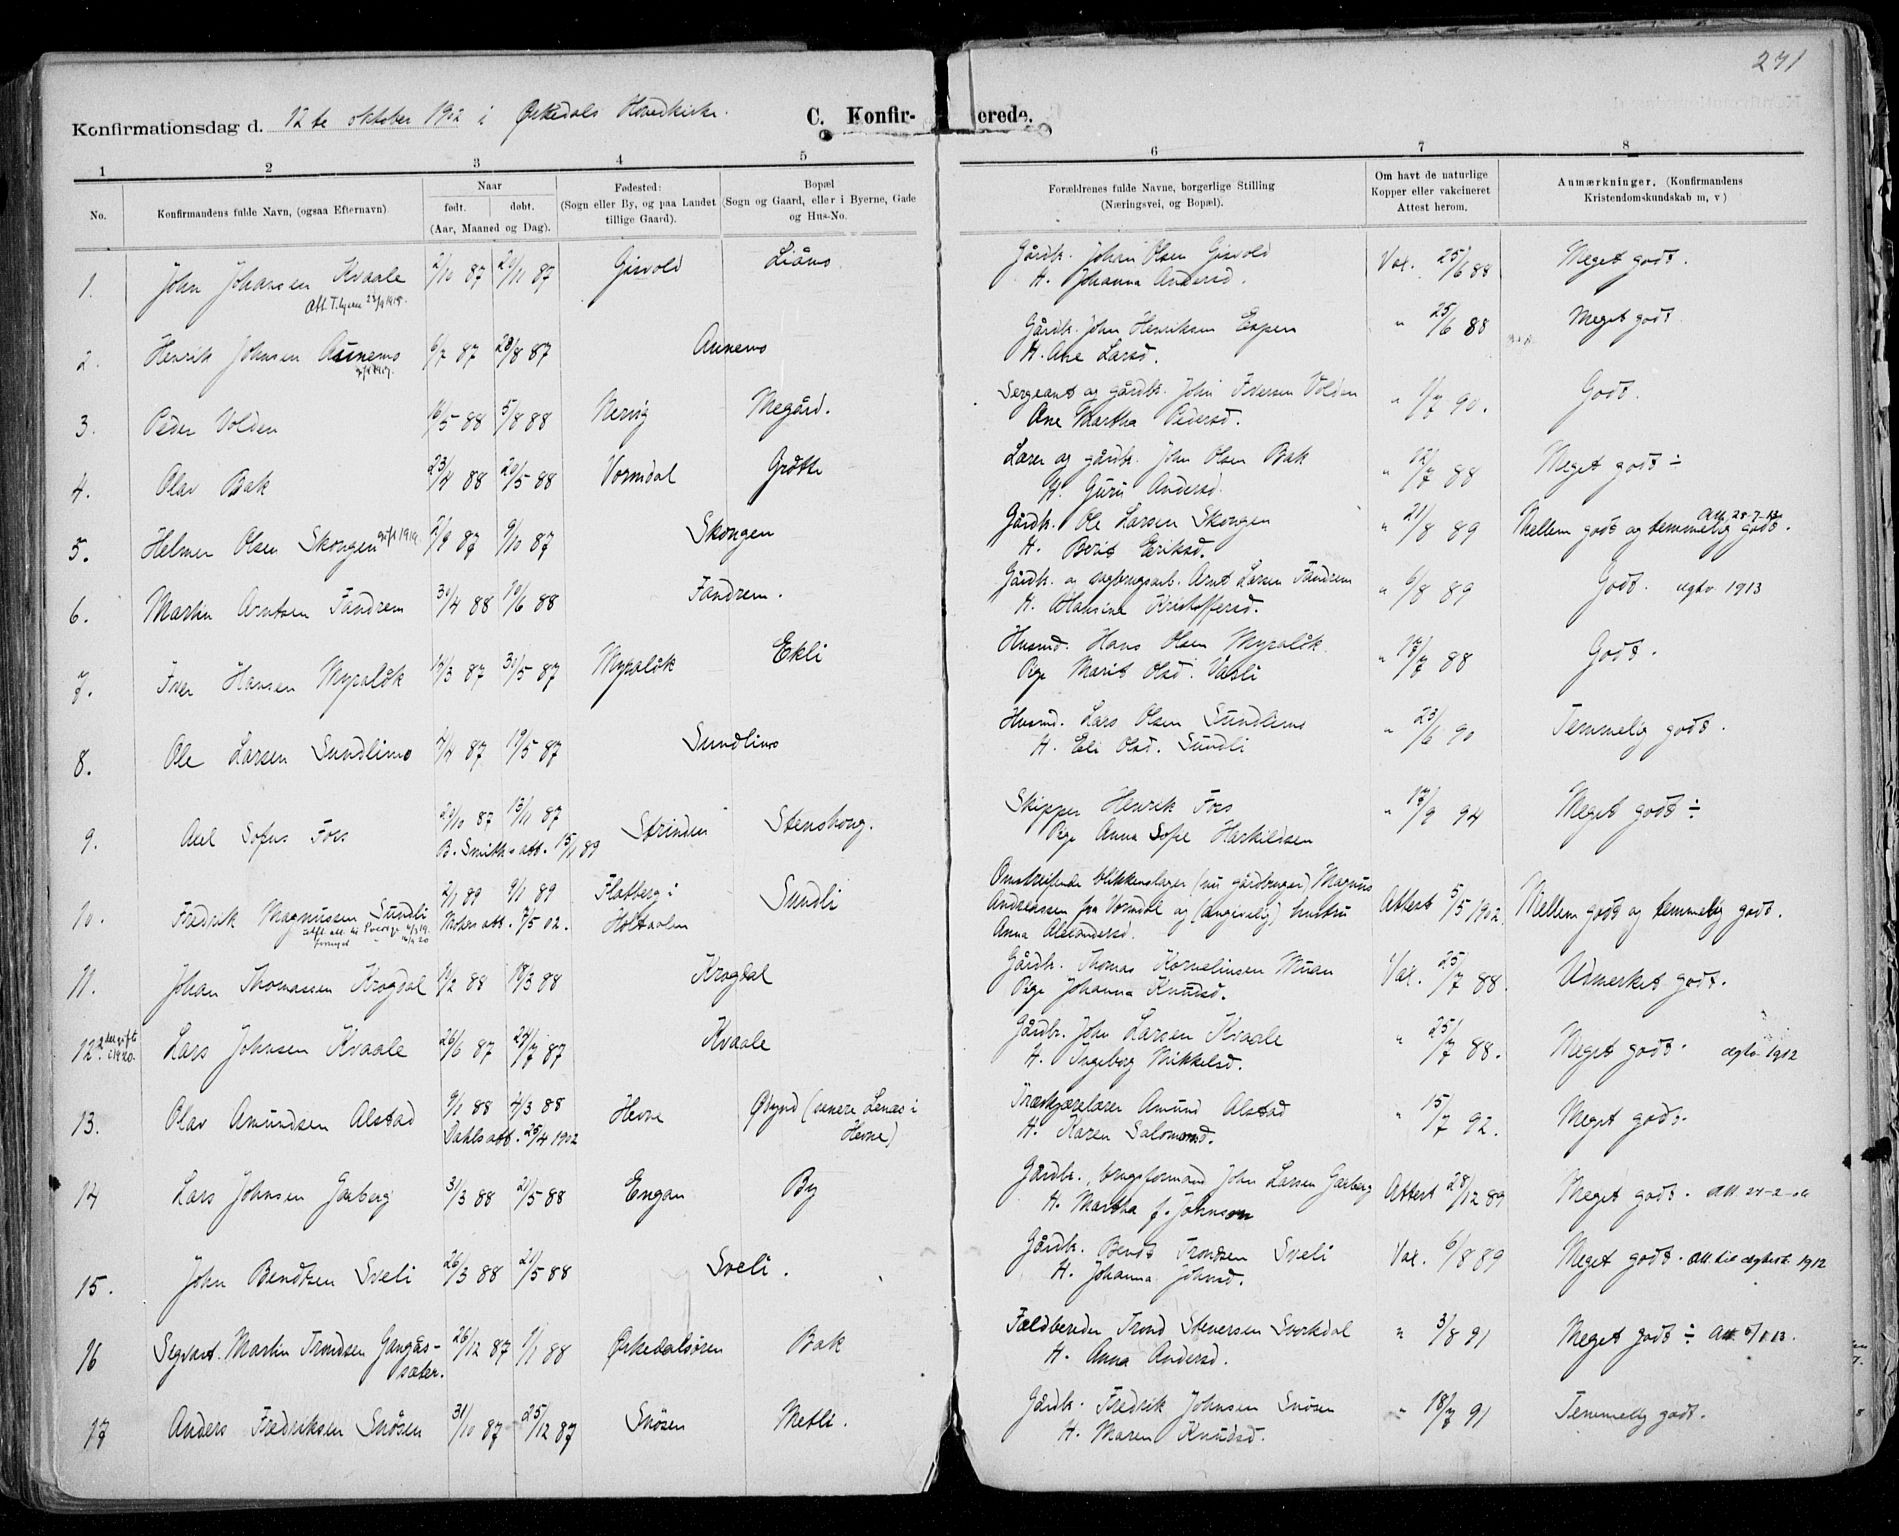 271
Konfirmationsdag d. 12te oktober 1902 i Ørkedals Hovedkirke.
C. Konfir- erede.
1 2 3 4 5 6 7 8
No.
Konfirmandens fulde Navn, (ogsaa Efternavn)
Naar
født. døbt.
(Aar, Maaned og Dag).
Fødested:
(Sogn eller By, og paa Landet
tillige Gaard).
Bopæl
(Sogn og Gaard, eller i Byerne, Gade
og Hus-No.
Forældrenes fulde Navne, borgerlige Stilling
(Næringsvei, og Bopæl).
Om havt de naturlige
Kopper eller vakcineret
Attest herom.
Anmærkninger. (Konfirmandens
Kristendomskundskab m, v)
1. John Johansen Kvaale 2/10 87 87 Gisvold Liøms Gårdb. Johan Olsen Gisvold Vax. 25/6 88 Meget godt.
H. Johanna Andersd.
2. Henrik Johnsen Aunemo 6/7 87 28/8 87 Aunemo Gårdb. John Henriksen Espen " 25/6 88 Meget godt
H. Ane Larsd.
3. Peder Volden 16/5 88 5/8 88 Nervig Megård. Sergeant og gårdb. John Volden " 1/7 90. Godt.
Ane Martha Pedersd.
4. Olav Bak 23/4 88 20/5 88 Vormdal Grøtte Lærer og gårdb. John Olsen Bak " 12/7 88 Meget godt ÷
H. Guru Andersd.
5. Helmer Olsen Skongen gift 1919 2/9 87 9/10 87 Skongen Gårdb. Ole Larsen Skongen " 21/8 89 Mellem godt og temmelig godt.
H. Berit Eriksd.
6. Martin Arntsen Fandrem 30/4 88 10/6 88 Fandrem. Gårdb. og sagbrugsarb. Arnt Larsen Fandrem " 6/8 89 Godt. ægtv 1913
H. Hansina Kristoffersd.
7. Iver Hansen Myraløk 12/3 87 31/5 87 Myraløk Ekli Husmd. Hans Olsen Myraløk. " 13/7 88 Godt.
Pige Marit Olsd. Vasli
8. Ole Larsen Sundlimo 7/4 87 19/5 87 Sundlimo Husmd. Lars Olsen Sundlimo " 23/6 90 Temmelig godt.
H. Eli Olsd. Sundli
9. Axel Sofus Fors 21/10 87 13/11 87 Strinden Stenshoug. Skipper Henrik Fors " 17/9 94 Meget godt ÷
B. Smiths att. 15/1 89 Pige Anna Sofie Haskildsen
10. Fredrik Magnussen Sundli 2/1 89 9/1 89 Flatberg i Sundli Omstreifende blikkenslager (nu gårdbruger) Magnus Attest 5/5 1902. Mellem godt og temmelig godt.
att. 7/5 02. Holtaalen Andreassen fra Vormdal og (angivelig) hustru
Anna Alexandersd.
11. Johan Thomassen Krogdal 19/2 88 18/3 88 Krogdal Gårdb. Thomas Kornelinsen Muan Vax. 25/7 88. Udmerket godt.
Pige Johanna Knudsd.
12. Lars Johnsen Kvaale 26/6 87 24/7 87 Kvaale Gårdb. John Larsen Kvaale " 25/7 88. Meget godt. ægtv 1912
H. Ingeborg Mikkelsd.
13. Olav Amundsen Alstad 9/1 88 4/3 88 Hevne Øbynd (senere Lenæs i Amund Alstad " 15/7 92. Meget godt.
Dahls att. 25/4 1902 Hevne) H. Karen Salomonsd.
14 Lars Johnsen Garberg 31/3 88 21/5 88 Engan By Gårdb., brugsformand John Larsen Garberg Attest 28/12 89 Meget godt.
H. Martha f. Johnson
15. John Bendtsen Sveli 26/3 88 21/5 88 Sveli. Gårdb. Bendt Trondsen Sveli Vax. 6/8 89 Meget godt. Att. til ægtesk. 1912
H. Johanna Johnsd.
16 Segvart Martin Trondsen Gangås- 26/12 87 1/1 88 Ørkedalsøren Bak Feldbereder Trond Steversen Svorkdal " 3/8 91 Meget godt ÷
sæter. H. Anna Andersd.
17 Anders Fredriksen Snøsen 31/10 87 25/12 87 Snøsen Metli. Gårdb. Fredrik Johnsen Snøsen " 18/7 91 Temmelig godt.
H. Maren Knudsd.